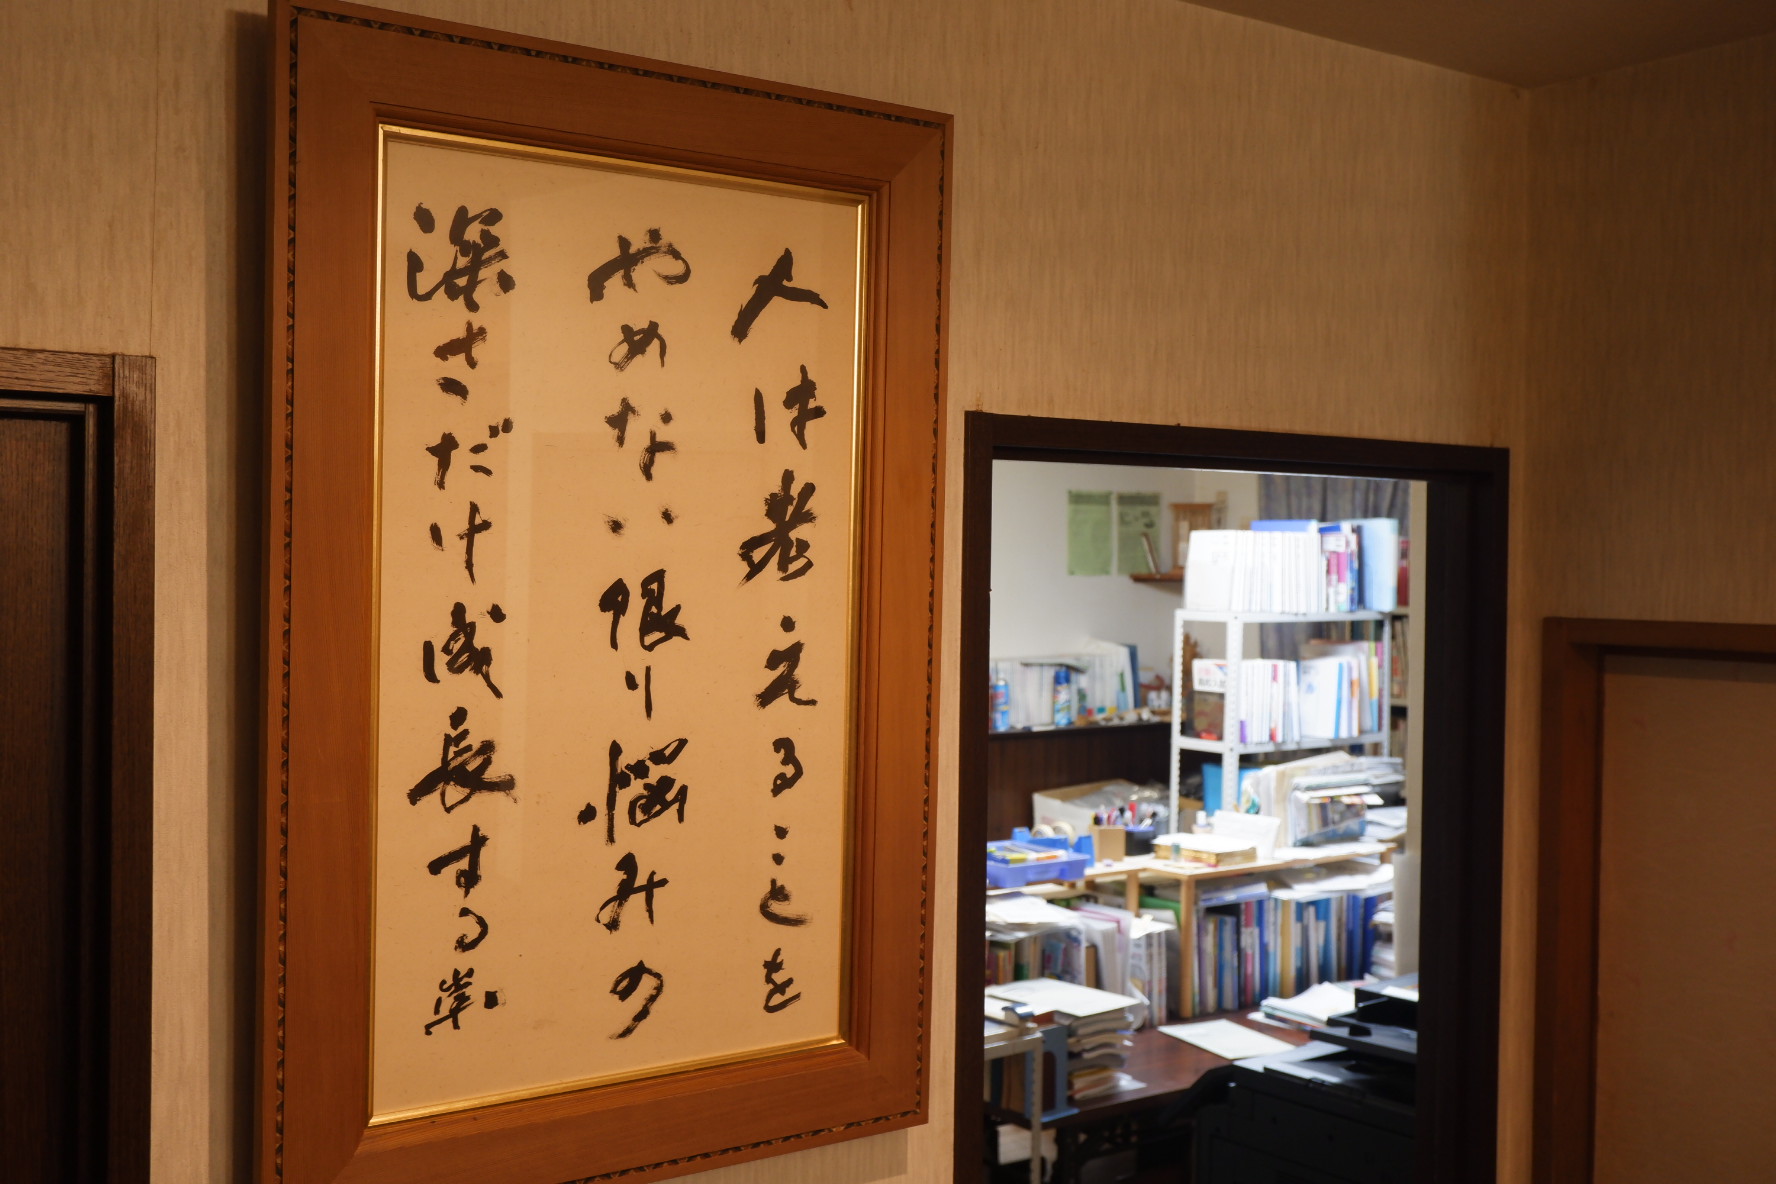 人は考えることを
やめない限り悩みの
深さだけ成長する